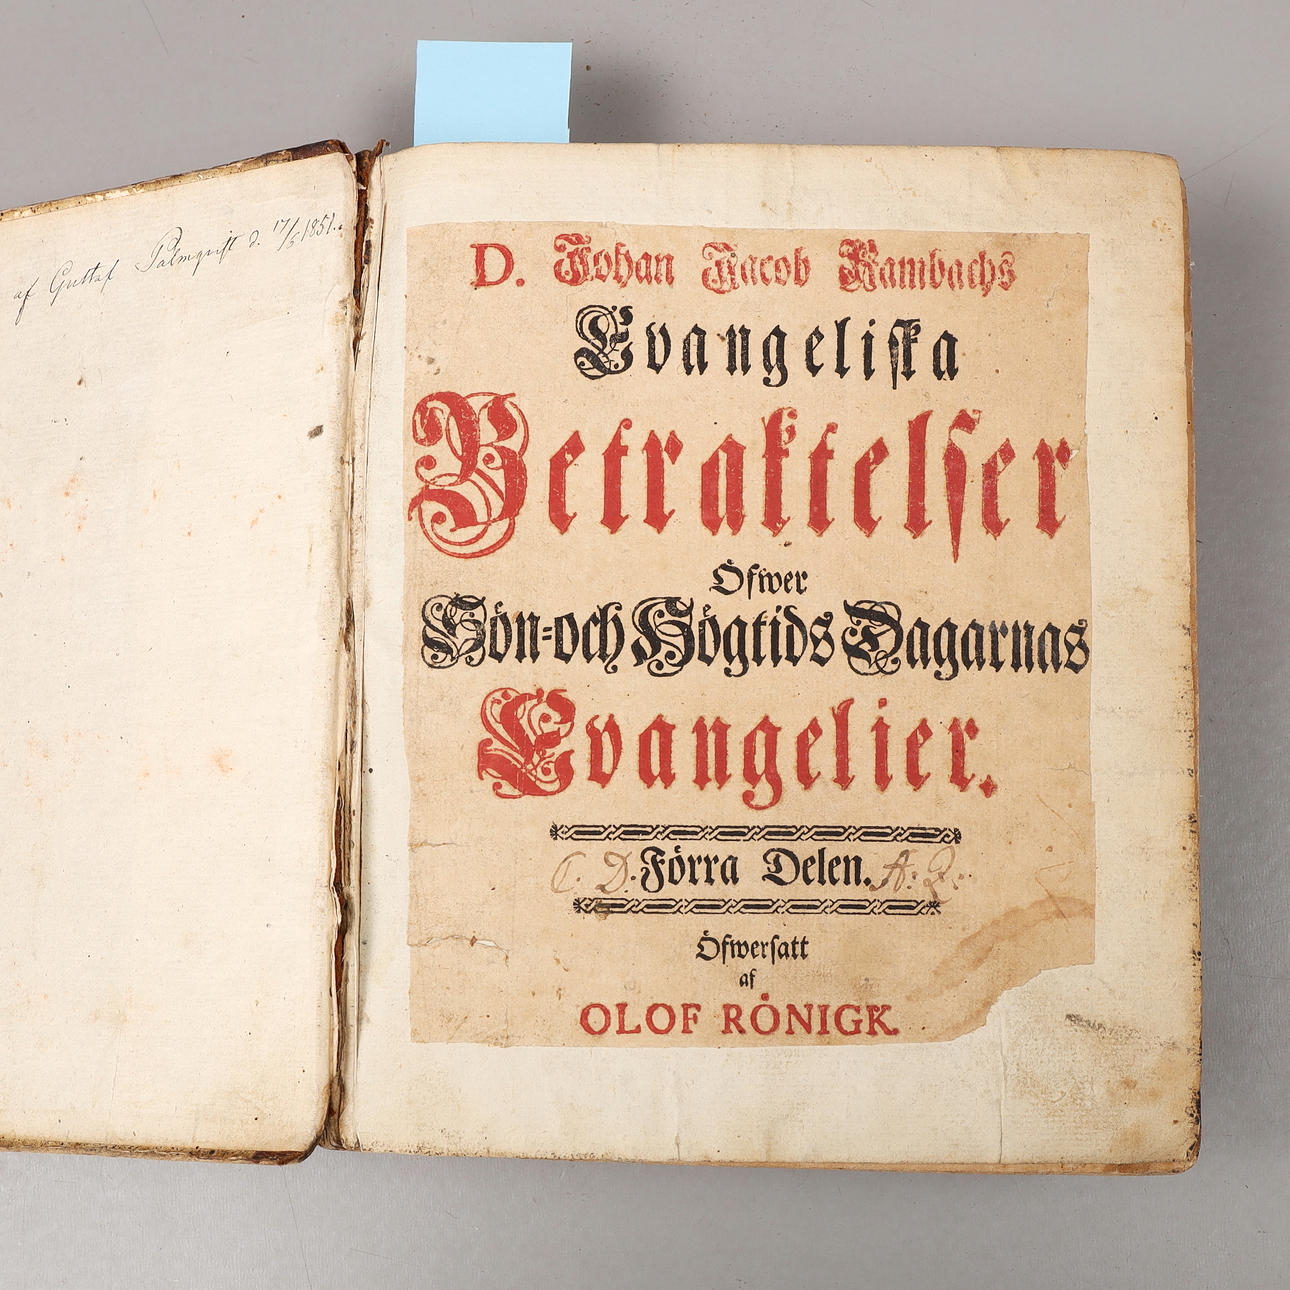 af Gustaf Palmqvist d. 17/5 1851.
D. Johan Jacob Rambachs
Evangeliska
Betraktelser
Öfwer
Sön-och Högtids Dagarnas
Evangelier.
C. D. Förra Delen. A. Z.
Öfwersatt
af
OLOF RÖNIGK.